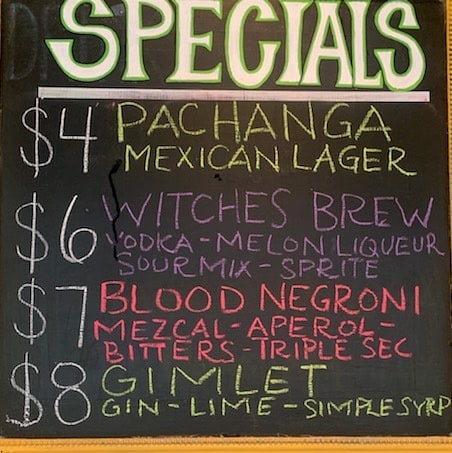 SPECIALS
$4 PACHANGA
MEXICAN LAGER
$6 WITCHES BREW
VODKA - MELON LIQUEUR
SOUR MIX - SPRITE
$7 BLOOD NEGRONI
MEZCAL - APEROL -
BITTERS - TRIPLE SEC
$8 GIMLET
GIN - LIME - SIMPLE SYRP